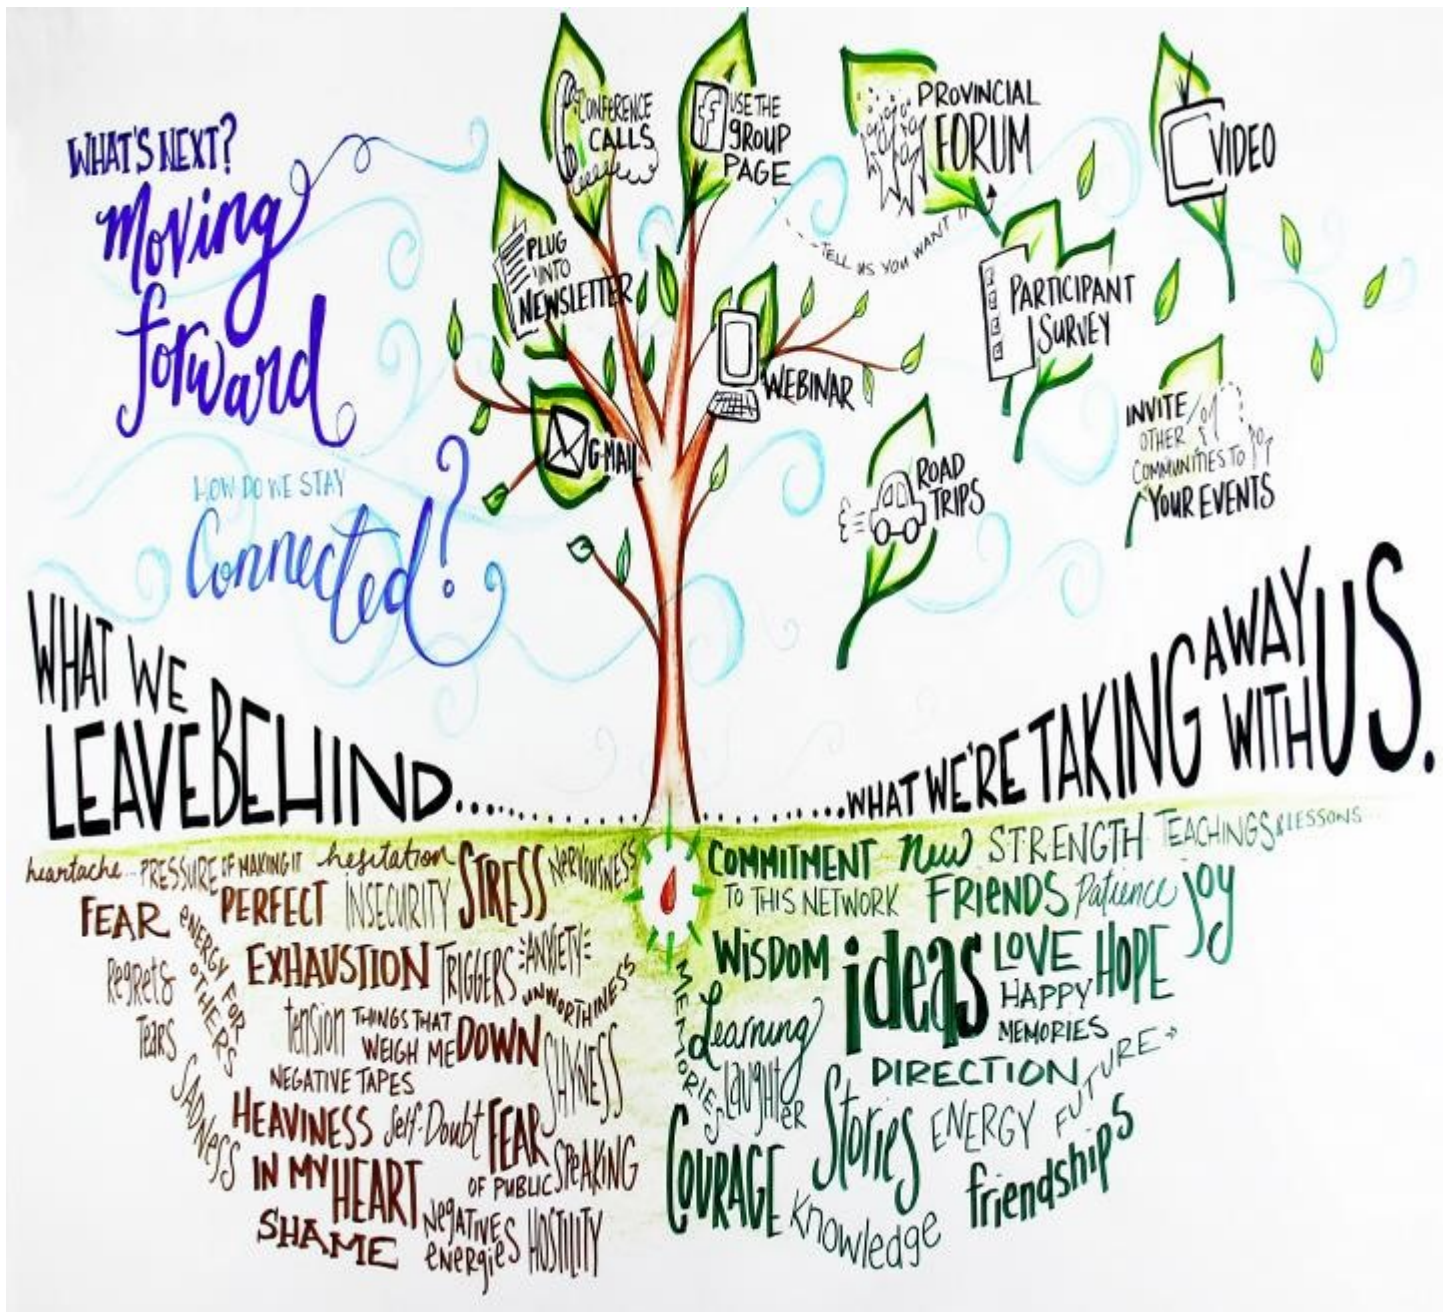 WHAT'S NEXT?
Moving
forward
HOW DO WE STAY
Connected?
CONFERENCE
CALLS
f
USE THE
gROUP
PAGE
PROVINCIAL
FORUM
TELL US YOU WANT
VIDEO
PLUG
INTO
NEWSLETTER
WEBINAR
G-MAIL
PARTICIPANT
SURVEY
ROAD
TRIPS
INVITE
OTHER
COMMUNITIES TO
YOUR EVENTS
WHAT WE
LEAVE BEHIND......
......WHAT WE'RE TAKING AWAY WITH US.
heartache...
PRESSURE OF MAKING IT
PERFECT
hesitation
INSECURITY
STRESS
NERVOUSNESS
FEAR
ENERGY FOR
OTHERS
Regrets
Tears
EXHAUSTION
TRIGGERS
ANXIETY
UNWORTHINESS
tension
THINGS THAT
WEIGH ME DOWN
SHYNESS
NEGATIVE TAPES
SADNESS
HEAVINESS
IN MY HEART
Self-Doubt
FEAR
OF PUBLIC SPEAKING
SHAME
NegATIVES
energies
HOSTILITY
COMMITMENT
TO THIS NETWORK
New
FRiENDS
STRENGTH
TEACHINGS & LESSONS...
Patience
joy
WiSDOM
ideas
LOVE
HOPE
HAPPY
MEMORIES
MEMORIES
Learning
Laughter
DIRECTION
FUTURE
Stories
ENERGY
COURAGE
Knowledge
friendships